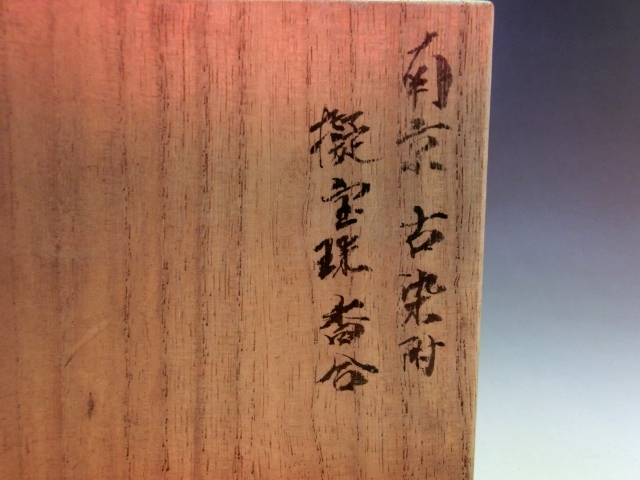 南京 古染附
擬宝珠 香合